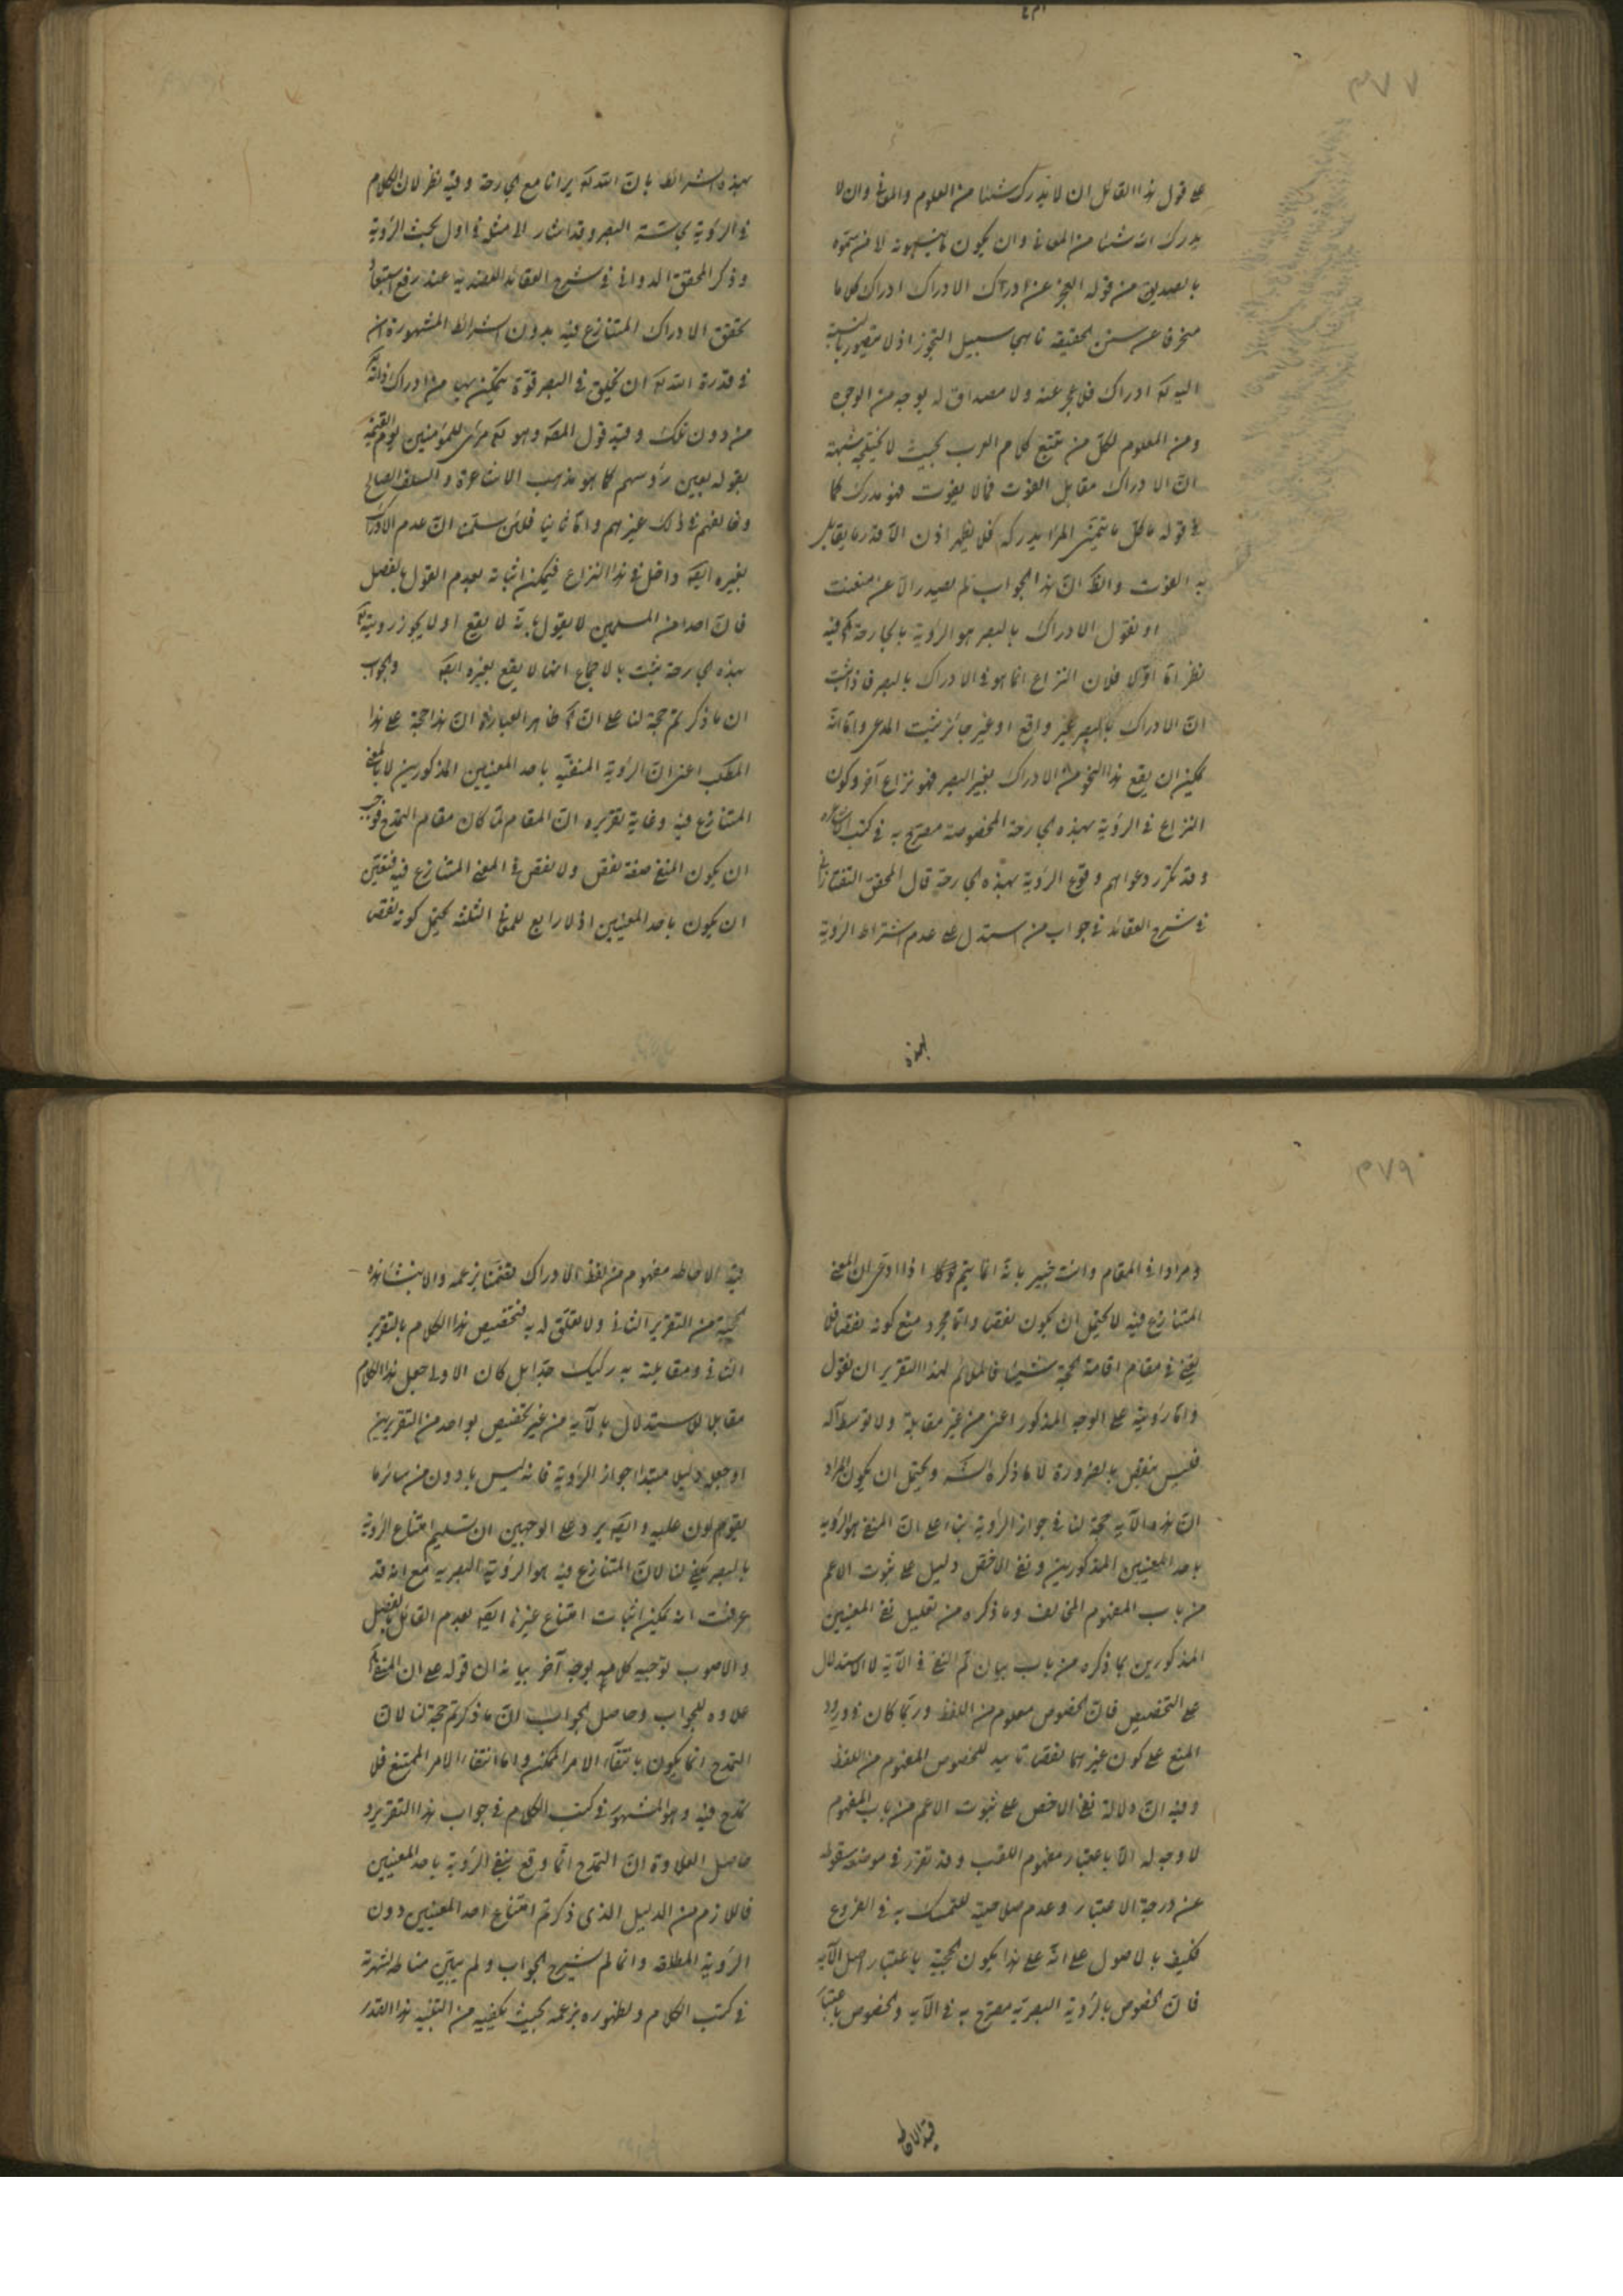 ٣٧٧
على قول هذا القائل ان لا ندرك شيئا من العلوم والمعاني وان لا
يدرك الله شيئا من المعاني وان يكون
بالصديق من قوله العجز عن ادراك الادراك ادراك كلاما
منحرفا عن سنن الحقيقة ناهجا سبيل التجوز اذ لا يتصور بالنسبة
اليه تع ادراك فلا عجز عنه ولا مصداق له بوجه من الوجوه
ومن المعلوم لكل من تتبع كلام العرب بحيث لا شبهة
ان الادراك مقابل الفوت فما لا يفوت فهو مدرك كما
في قوله ما كل ما يتمنى المرا يدركه فلا يظهر اذن الا قدر ما يقابل
به الفوت والظ ان هذا الجواب لم يصدر الا عن متعنت
او نقول الادراك بالبصر هو الرؤية بالجارحة فيه
نظر اما اولا فلان النزاع انما هو في الادراك بالبصر فاذا ثبت
ان الادراك بالبصر غير واقع او غير جائز ثبت المدعى واما انه
يمكن ان يقع هذا النحو من الادراك بغير البصر فهو نزاع آخر وكون
النزاع في الرؤية بهذه الجارحة المخصوصة مصرح به في كتب الاشاعرة
وقد تكرر دعواهم وقوع الرؤية بهذه الجارحة قال المحقق التفتازاني
في شرح العقائد في جواب من استدل على عدم اشتراط الرؤية
بهذه
بهذه الشرائط بان الله تع يرانا مع الجارحة وفيه نظر لان الكلام
في الرؤية بحاسة البصر وقد اشار الى مثله في اول بحث الرؤية
وذكر المحقق الدواني في شرح العقائد العضدية عند رفع استبعاد
تحقق الادراك المتنازع فيه بدون الشرائط المشهورة ان
في قدرة الله تع ان يخلق في البصر قوة يتمكن بها من ادراك ذاته تع
من دون تلك وقيد قول المصه وهو تع مرئى للمؤمنين يوم القيمة
بقوله بعين رؤسهم كما هو مذهب الاشاعرة والسلف الصالح
وخالفهم في ذلك غيرهم واما ثانيا فلئن سلمنا ان عدم الادراك
بغيره ايضا داخل في هذا النزاع فيمكن اثباته بعدم القول بالفصل
فان احدا من المسلمين لا يقول بانه لا يقع او لا يجوز رؤيته تع
بهذه الجارحة ثبت بالاجماع انها لا يقع بغيره ايضا والجواب
ان ما ذكرتم حجة لنا على ان ظاهر العبارة ان هذا حجة على هذا
المطلب اعنى ان الرؤية المنفية باحد المعنيين المذكورين لا بالمعنى
المتنازع فيه وغاية تقريره ان المقام لما كان مقام التمدح فوجب
ان يكون المنفي صفة نقص ولا نقص في المعنى المتنازع فيه فتعين
ان يكون باحد المعنيين اذ لا رابع للمعاني الثلثة يحتمل كونه نقص
٣٧٩
ومرادا في المقام وانت خبير بانه انما يتم ذلك اذا ادعى ان المعنى
المتنازع فيه لا يحتمل ان يكون نقصا واما مجرد منع كونه نقصا فلا
يغني في مقام اقامة الحجة شيئا فالملائم لهذا التقرير ان نقول
واما رؤيته على الوجه المذكور اعنى من غير مقابلة ولا توسط آلة
فليس بنقص بالضرورة لا ما ذكره الش ويحتمل ان يكون المراد
ان هذه الآية حجة لنا في جواز الرؤية بناء على ان المنفي هو الرؤية
باحد المعنيين المذكورين ونفي الاخص دليل على ثبوت الاعم
من باب المفهوم المخالف وما ذكره من تعليل نفي المعنيين
المذكورين بما ذكره من باب بيان لم النفي في الآية لا الاستدلال
على التخصيص فان الخصوص معلوم من اللفظ وربما كان في ورود
المنع على كون غيرهما نقصا تاييد للخصوص المفهوم من اللفظ
وفيه ان دلالة نفي الاخص على ثبوت الاعم من باب المفهوم
لا وجه له الا باعتبار مفهوم اللقب وقد تقرر في موضعه سقوطه
عن درجة الاعتبار وعدم صلاحيته للتمسك به في الفروع
فكيف بالاصول على انه على هذا يكون الحجية باعتبار اصل الآية
فان الخصوص بالرؤية البصرية مصرح به في الآية والخصوص باعتبار
قيد الاحاطة
قيد الاحاطة مفهوم من لفظ الادراك بزعمه والا
لحجية من التقرير الثاني ولا تعلق له به فتخصيص هذا الكلام بالتقرير
الثاني ومقابلته به ركيك جدا بل كان الاولى جعل هذا الكلام
مقابلا للاستدلال بالآية من غير تخصيص بواحد من التقريرين
او جعل دليل مبتدا جواز الرؤية فانه ليس بادون من سائر ما
يعولون عليه وايضا يرد على الوجهين ان تسليم امتناع الرؤية
بالبصر يكفي لنا لان المتنازع فيه هو الرؤية البصرية مع انه قد
عرفت انه يمكن اثبات امتناع غيرها ايضا بعدم القائل بالفصل
والاصوب توجيه كلامه بوجه آخر بيانه ان قوله على ان المنفي
علاوة للجواب وحاصل الجواب ان ما ذكرتم حجة لنا لان
التمدح انما يكون بانتفاء الامر الممكن واما انتفاء الامر الممتنع فلا
تمدح فيه وهو المشهور في كتب الكلام في جواب هذا التقرير و
حاصل العلاوة ان التمدح انما وقع بنفي الرؤية باحد المعنيين
فاللازم من الدليل الذي ذكرتم امتناع احد المعنيين دون
الرؤية المطلقة وانما لم يشرح الجواب ولم يبين مناطه لشهرته
في كتب الكلام ولظهوره بزعمه بحيث يكفيه من التنبيه هذا القدر